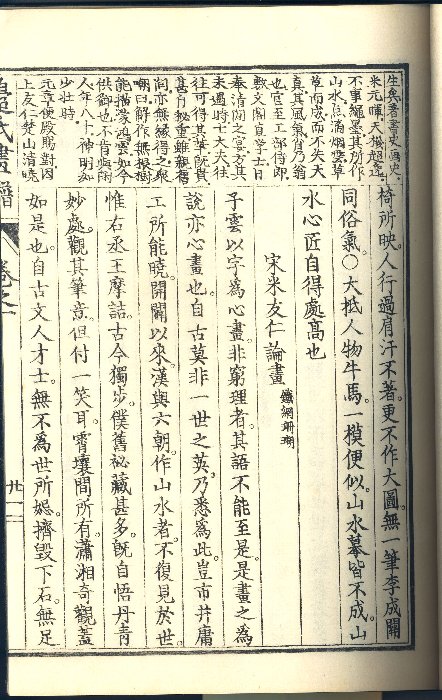 生矣著書史畫史
米元暉天機超逸
不事繩墨其所作
山水點滴烟雲草
草而成而不失天
真其風氣肖乃翁
也官至工部侍郎
敷文閣直學士日
奉清閒之宴方其
未遇時士大夫往
往可得其筆既貴
甚自祕重雖親舊
間亦無緣得之衆
嘲曰解作無根樹
能描濛鴻雲如今
供御也不肯與閒
人年八十神明如
少壯時
元章便殿賜對因
上友仁楚山清曉
椅所映。人行過肩汗不著。更不作大圖。無一筆李成關
同俗氣。○大抵人物牛馬。一模便似。山水摹皆不成。山
水心匠自得處高也
宋米友仁論畫 鐵網珊瑚
子雲以字為心畫。非窮理者。其語不能至是。是畫之為
說亦心畫也。自古莫非一世之英。乃悉為此。豈市井庸
工所能曉。開闢以來。漢與六朝。作山水者。不復見於世。
惟右丞王摩詰。古今獨步。僕舊祕藏甚多。既自悟丹青
妙處。觀其筆意。但付一笑耳。霄壤間所有瀟湘奇觀。蓋
如是也。自古文人才士。無不為世所。擠毀下石。無足
氏畫譜